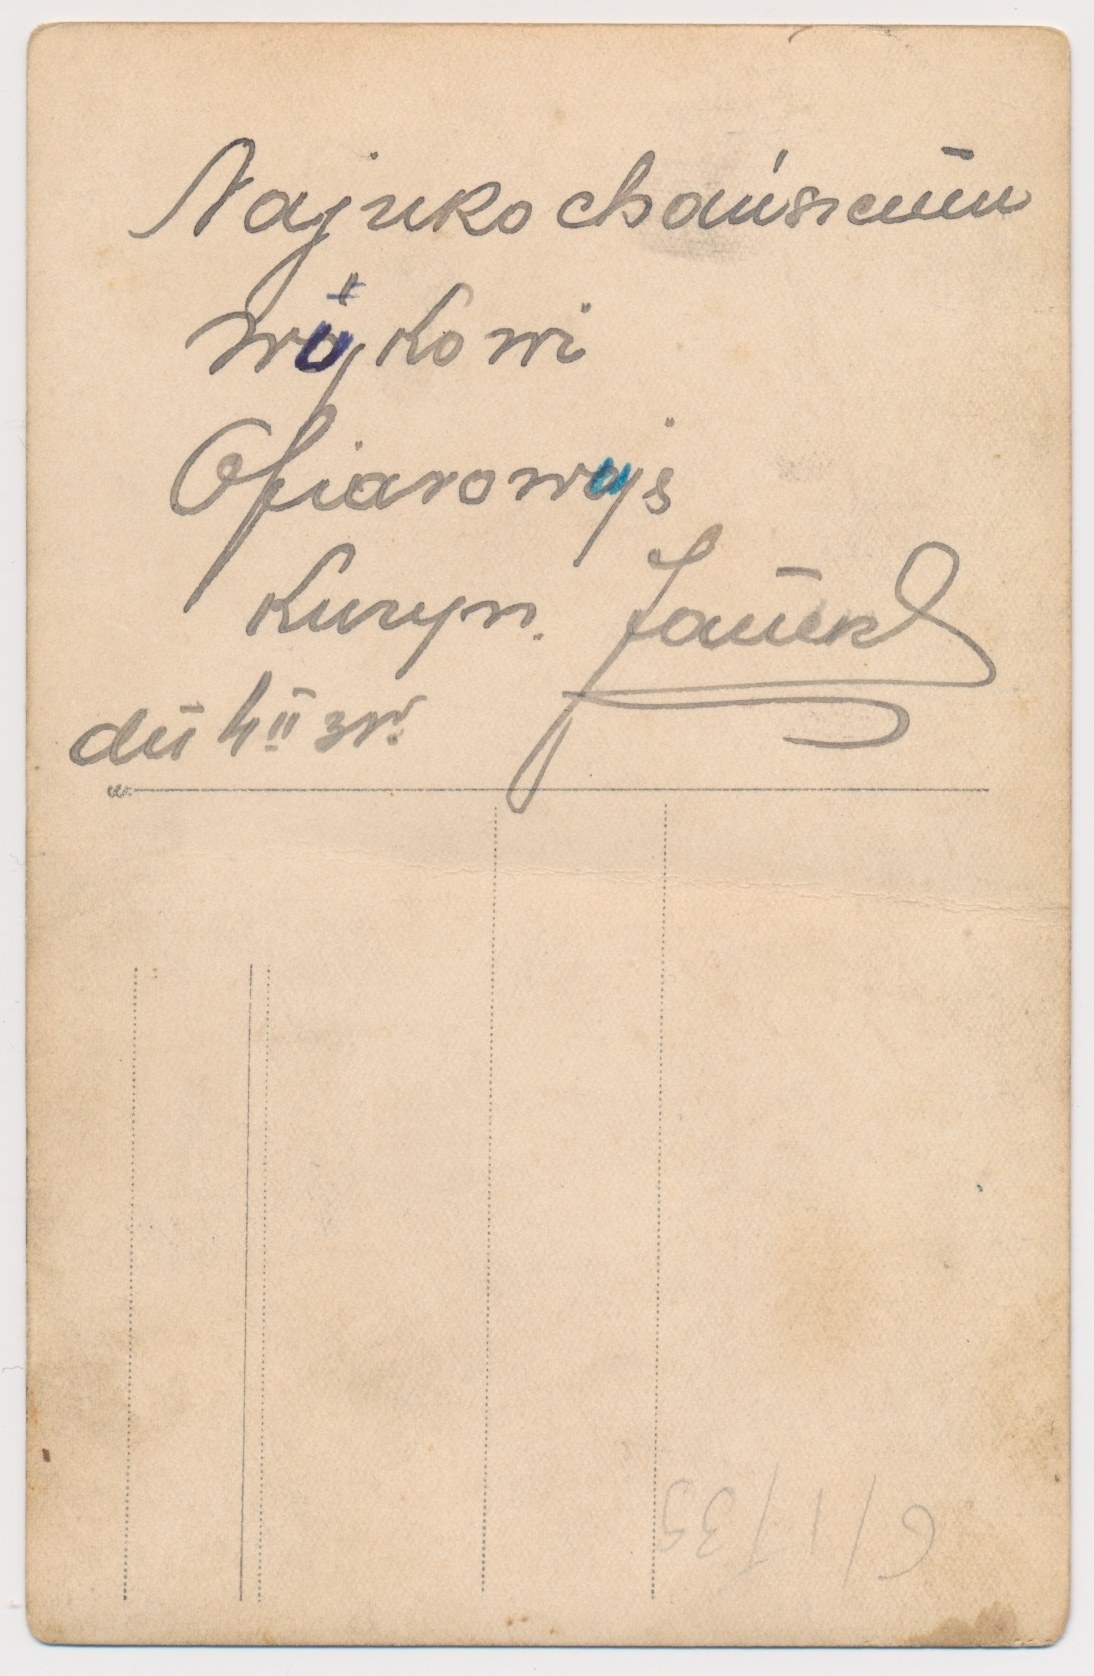 Najukochańszemu
Wujkowi
Ofiarowujs
Kuzyn. Janek
dń 4 II 3
6/1/35